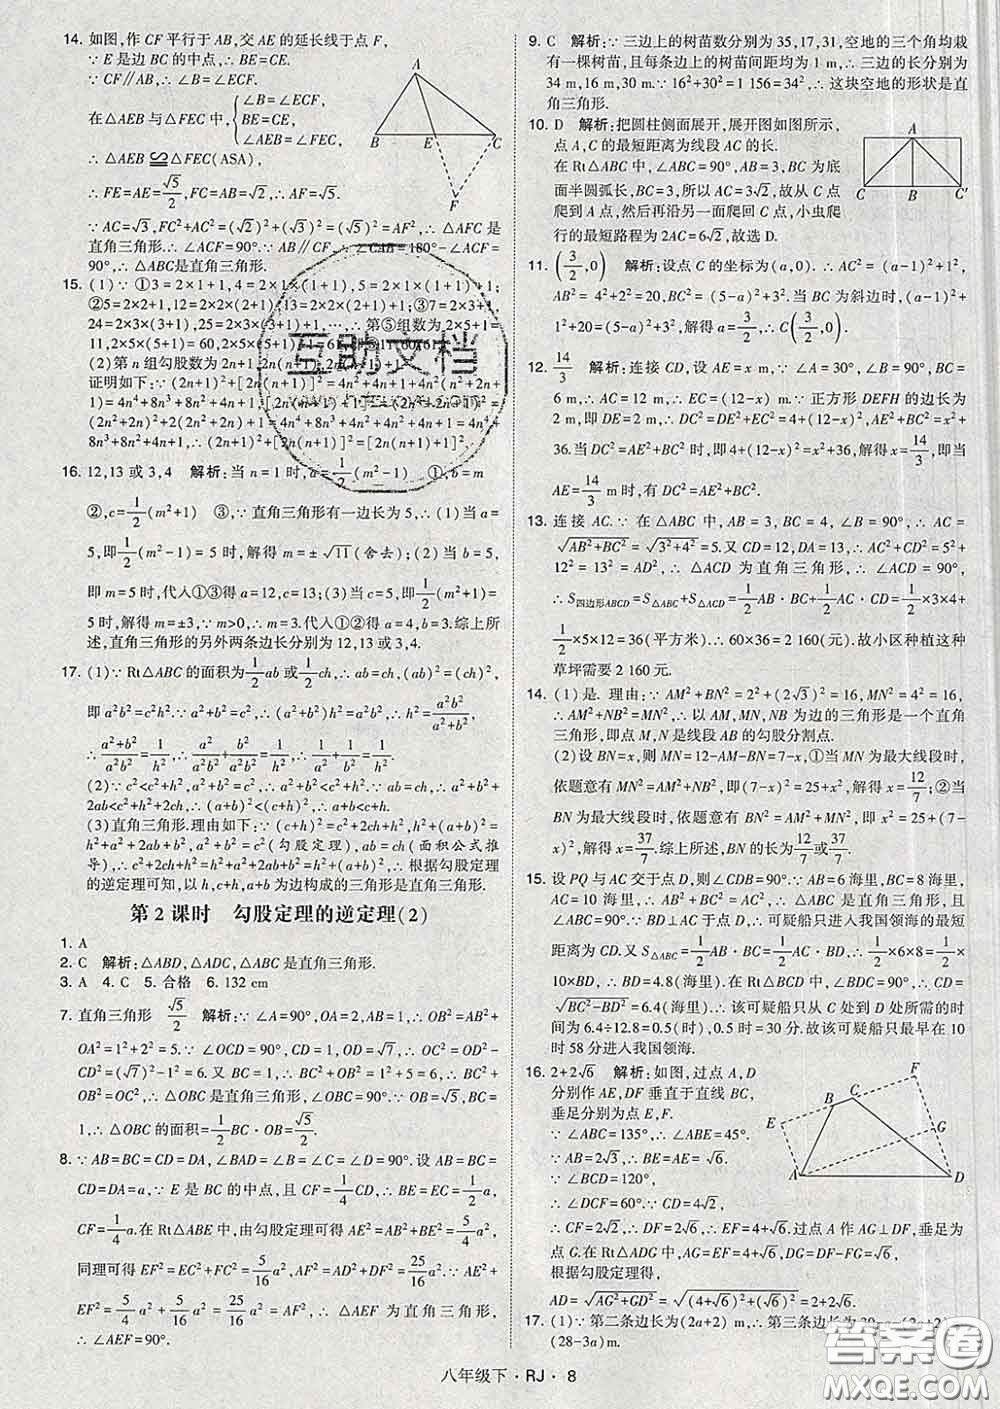 14. 如图,作 CF 平行于 AB,交 AE 的延长线于点 F,
∵ E 是边 BC 的中点,∴ BE=CE.
∵ CF∥AB,∴ ∠B=∠ECF.
在△AEB 与△FEC 中, {∠B=∠ECF, BE=CE, ∠AEB=∠FEC,
∴ △AEB≌△FEC(ASA),
∴ FE=AE=√5/2,FC=AB=√2,∴ AF=√5.
∵ AC=√3,FC²+AC²=(√2)²+(√3)²=(√5)²=AF²,∴ △AFC 是
直角三角形.∴ ∠ACF=90°.∵ AB∥CF,∴ ∠CAB=180°-∠ACF=
90°.∴ △ABC是直角三角形.
15. (1)∵ ①3=2×1+1,4=2×1×(1+1),5=2×1×(1+1)+1;
②5=2×2+1,12=2×2×(2+1),13=2×2×(2+1)+1;③7=2×3+1,
24=2×3×(3+1),25=2×3×(3+1)+1,…,∴ 第⑤组数为2×5+1=
11,2×5×(5+1)=60,2×5×(5+1)+1=61,即11,60,61.
(2)第 n 组勾股数为 2n+1,2n(n+1),2n(n+1)+1.
证明如下:∵ (2n+1)²+[2n(n+1)]²=4n²+4n+1+4n²(n²+2n+
1)=4n⁴+8n³+8n²+4n+1,[2n(n+1)+1]²=
(2n²+2n)²+2(2n²+2n)+1=4n⁴+8n³+4n²+4n²+4n+1=4n⁴+
8n³+8n²+4n+1,∴ (2n+1)²+[2n(n+1)]²=[2n(n+1)+1]².
16. 12,13 或 3,4 解析:当 n=1 时,a=1/2(m²-1) ①,b=m
②,c=1/2(m²+1) ③,∵ 直角三角形有一边长为 5,∴ (1)当 a=
5,即1/2(m²-1)=5 时,解得 m=±√11(舍去);(2)当 b=5,
即 m=5 时,代入①③得 a=12,c=13;(3)当 c=5,即1/2(m²+1)
=5 时,解得 m=±3,∵ m>0,∴ m=3.代入①②得 a=4,b=3.综上所
述,直角三角形的另外两条边长分别为 12,13 或 3,4.
17. (1)∵ Rt△ABC 的面积为1/2ab 或1/2ch,∴ ab=ch,(ab)²=(ch)²,
即 a²b²=c²h².∵ a²+b²=c²,∴ (a²+b²)h²=a²b².∴ h²=a²b²/(a²+b²),
∴ (a²+b²)/(a²b²)=1/h².∴ 1/a²+1/b²=1/h².
(2)∵ c²<c²+h²,a²+b²=c²,∴ a²+b²<c²+h².∵ ab=ch,∴ a²+b²+
2ab<c²+h²+2ch,∴ (a+b)²<(c+h)²,∴ a+b<c+h.
(3)直角三角形.理由如下:∵ (c+h)²=c²+2ch+h²,h²+(a+b)²=
h²+a²+2ab+b²,a²+b²=c²(勾股定理),ab=ch(面积公式推
导),∴ c²+2ch+h²=h²+a²+2ab+b²=h²+(a+b)²,∴ 根据勾股定理
的逆定理可知,以 h,c+h,a+b 为边构成的三角形是直角三角形.
第 2 课时 勾股定理的逆定理(2)
1. A
2. C 解析:△ABD,△ADC,△ABC是直角三角形.
3. A 4. C 5. 合格 6. 132 cm
7. 直角三角形 √5/2 解析:∵ ∠A=90°,OA=2,AB=1,∴ OB²=AB²+
OA²=1²+2²=5.∵ ∠OCD=90°,CD=1,OD=√7,∴ OC²=OD²-
CD²=(√7)²-1²=6.∵ BC=1,∴ OB²+BC²=1+5=6,∴ BC²+
OB²=OC²,∴ △OBC是直角三角形,∠OBC=90°.∵ OB=√5,BC=
1,∴ △OBC 的面积=1/2BC·OB=√5/2.
8. ∵ AB=BC=CD=DA,∠BAD=∠B=∠C=∠D=90°.设 AB=BC=
CD=DA=a,∵ E 是 BC 的中点,且 CF=1/4CD,∴ BE=EC=1/2a,
CF=1/4a.在 Rt△ABE 中,由勾股定理可得 AE²=AB²+BE²=5/4a²,
同理可得 EF²=EC²+FC²=5/16a²,AF²=AD²+DF²=25/16a².∵ AE²+
EF²=5/4a²+5/16a²=25/16a²=AF²,∴ △AEF 为直角三角形,
∴ ∠AEF=90°.
A
B
E
C
F
9. C 解析:∵ 三边上的树苗数分别为 35,17,31,空地的三个角均栽
有一棵树苗,且每条边上的树苗间距均为 1 m,∴ 三边的长分别为
34 m,16 m,30 m.∵ 16²+30²=1 156=34²,∴ 这块空地的形状是直
角三角形.
10. D 解析:把圆柱侧面展开,展开图如图所示,
点 A,C 的最短距离为线段 AC 的长.
在 Rt△ABC 中,∠ABC=90°,AB=3,BC 为底
面半圆弧长,BC=3,所以 AC=3√2,故从 C 点
爬到 A 点,然后从另一面爬回 C 点,小虫爬
行的最短路程为2AC=6√2,故选 D.
A
C
B
C′
11. (3/2,0) 解析:设点 C 的坐标为(a,0).∴ AC²=(a-1)²+1²,
AB²=4²+2²=20,BC²=(5-a)²+3².当 BC 为斜边时,(a-1)²+
1²+20=(5-a)²+3²,解得 a=3/2,∴ C(3/2,0).
12. 14/3 解析:连接 CD,设 AE=x m,∵ ∠A=30°,∠B=90°,BC=
6 m,∴ AC=12 m,∴ EC=(12-x)m.∵ 正方形 DEFH 的边长为
2 m,即 DE=2 m,∴ DC²=DE²+EC²=4+(12-x)²,AB²+BC²=x²+
36.∵ DC²=AE²+BC²,∴ 4+(12-x)²=x²+36.解得 x=14/3.∴ 当
AE=14/3 m 时,有 DC²=AE²+BC².
13. 连接 AC.∵ 在△ABC 中,AB=3,BC=4,∠B=90°,∴ AC=
√(AB²+BC²)=√(3²+4²)=5.又 CD=12,DA=13,∴ AC²+CD²=5²+
12²=13²=AD²,∴ △ACD 为直角三角形,∴ ∠ACD=90°.
∴ S四边形ABCD=S△ABC+S△ACD=1/2AB·BC+1/2AC·CD=1/2×3×4+
1/2×5×12=36(平方米),∴ 60×36=2 160(元).故小区种植这种
草坪需要 2 160 元.
14. (1)是.理由:∵ AM²+BN²=2²+(2√3)²=16,MN²=4²=16,
∴ AM²+NB²=MN²,∴ 以 AM,MN,NB 为边的三角形是一个直角
三角形,即点 M,N 是线段 AB 的勾股分割点.
(2)设 BN=x,则 MN=12-AM-BN=7-x,①当 MN 为最大线段时,
依题意有 MN²=AM²+NB²,即(7-x)²=25+x²,解得 x=12/7;②当
BN 为最大线段时,依题意有 BN²=AM²+MN²,即 x²=25+(7-
x)²,解得 x=37/7.综上所述,BN 的长为12/7或37/7.
15. 设 PQ 与 AC 交于点 D,则∠CDB=90°.∵ AB=6 海里,BC=8 海里,
AC=10 海里,∴ AB²+BC²=AC².∴ △ABC 是直角三角形,且
∠ABC=90°.∵ BD⊥AC 于点 D,∴ 可疑船只进入我国领海的最短
距离为 CD.又 S△ABC=1/2AB·BC=1/2AC·BD,∴ 1/2×6×8=1/2
×10×BD,∴ BD=4.8 海里,在 Rt△BCD 中,∠BDC=90°,∴ CD=
√(BC²-BD²)=6.4(海里).∴ 该可疑船只从 C 处到 D 处所需的时间
为 6.4÷12.8=0.5(时),0.5 时=30 分.故该可疑船只最早在 10
时 58 分进入我国领海.
16. 2+2√6 解析:如图,过点 A,D
分别作 AE,DF 垂直于直线 BC,
垂足分别为点 E,F.
∵ ∠ABC=135°,∴ ∠ABE=45°.
∵ AB=2√3,∴ BE=AE=√6.
∵ ∠BCD=120°,
∴ ∠DCF=60°.∵ CD=4√2,
∴ CF=2√2,∴ DF=2√6,∴ EF=4+√6.过点 A 作 AG⊥DF,垂足为
点 G.在 Rt△ADG 中,AG=EF=4+√6,DG=DF-FG=√6,
根据勾股定理得,
AD=√(AG²+GD²)=√((4+√6)²+(√6)²)=2+2√6.
F
C
B
E
G
A
D
17. (1)∵ 第二条边长为(2a+2) m,∴ 第三条边长为30-a-(2a+2)=
(28-3a) m.
八年级下 · RJ · 8
互助文档
答案圈
MXQE.COM